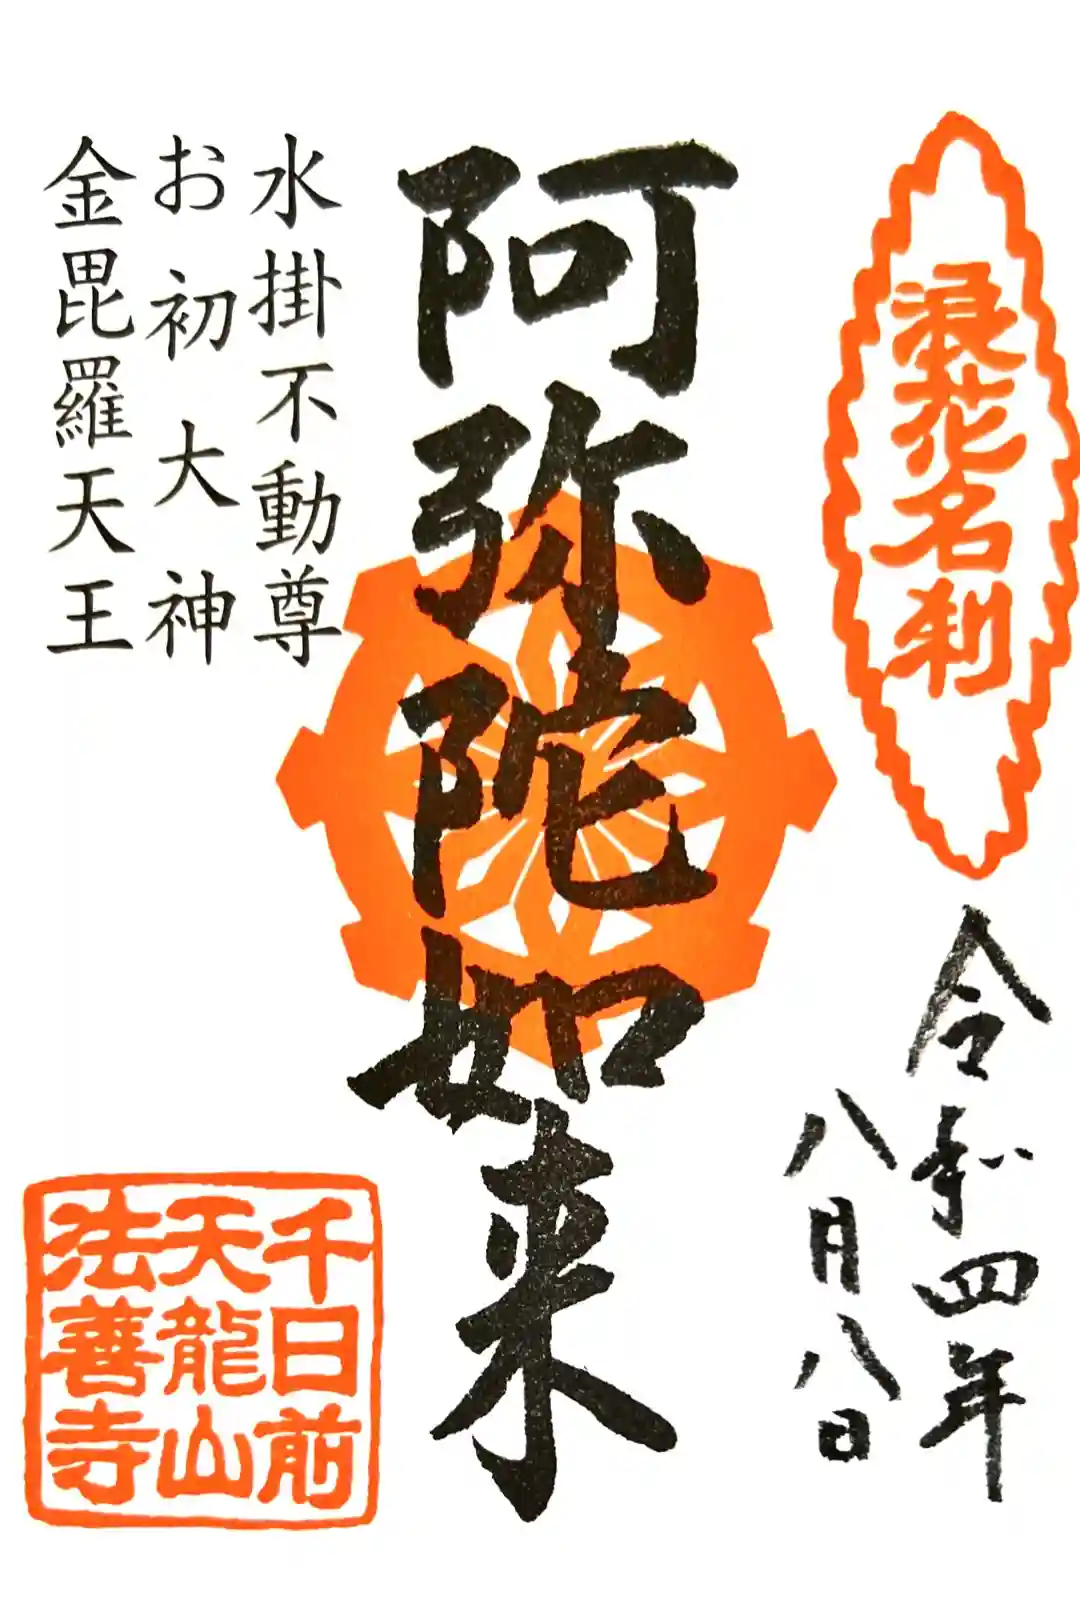 浪花名刹
令和四年
八月八日
阿弥陀如来
水掛不動尊
お初大神
金毘羅天王
千日前
天龍山
法善寺